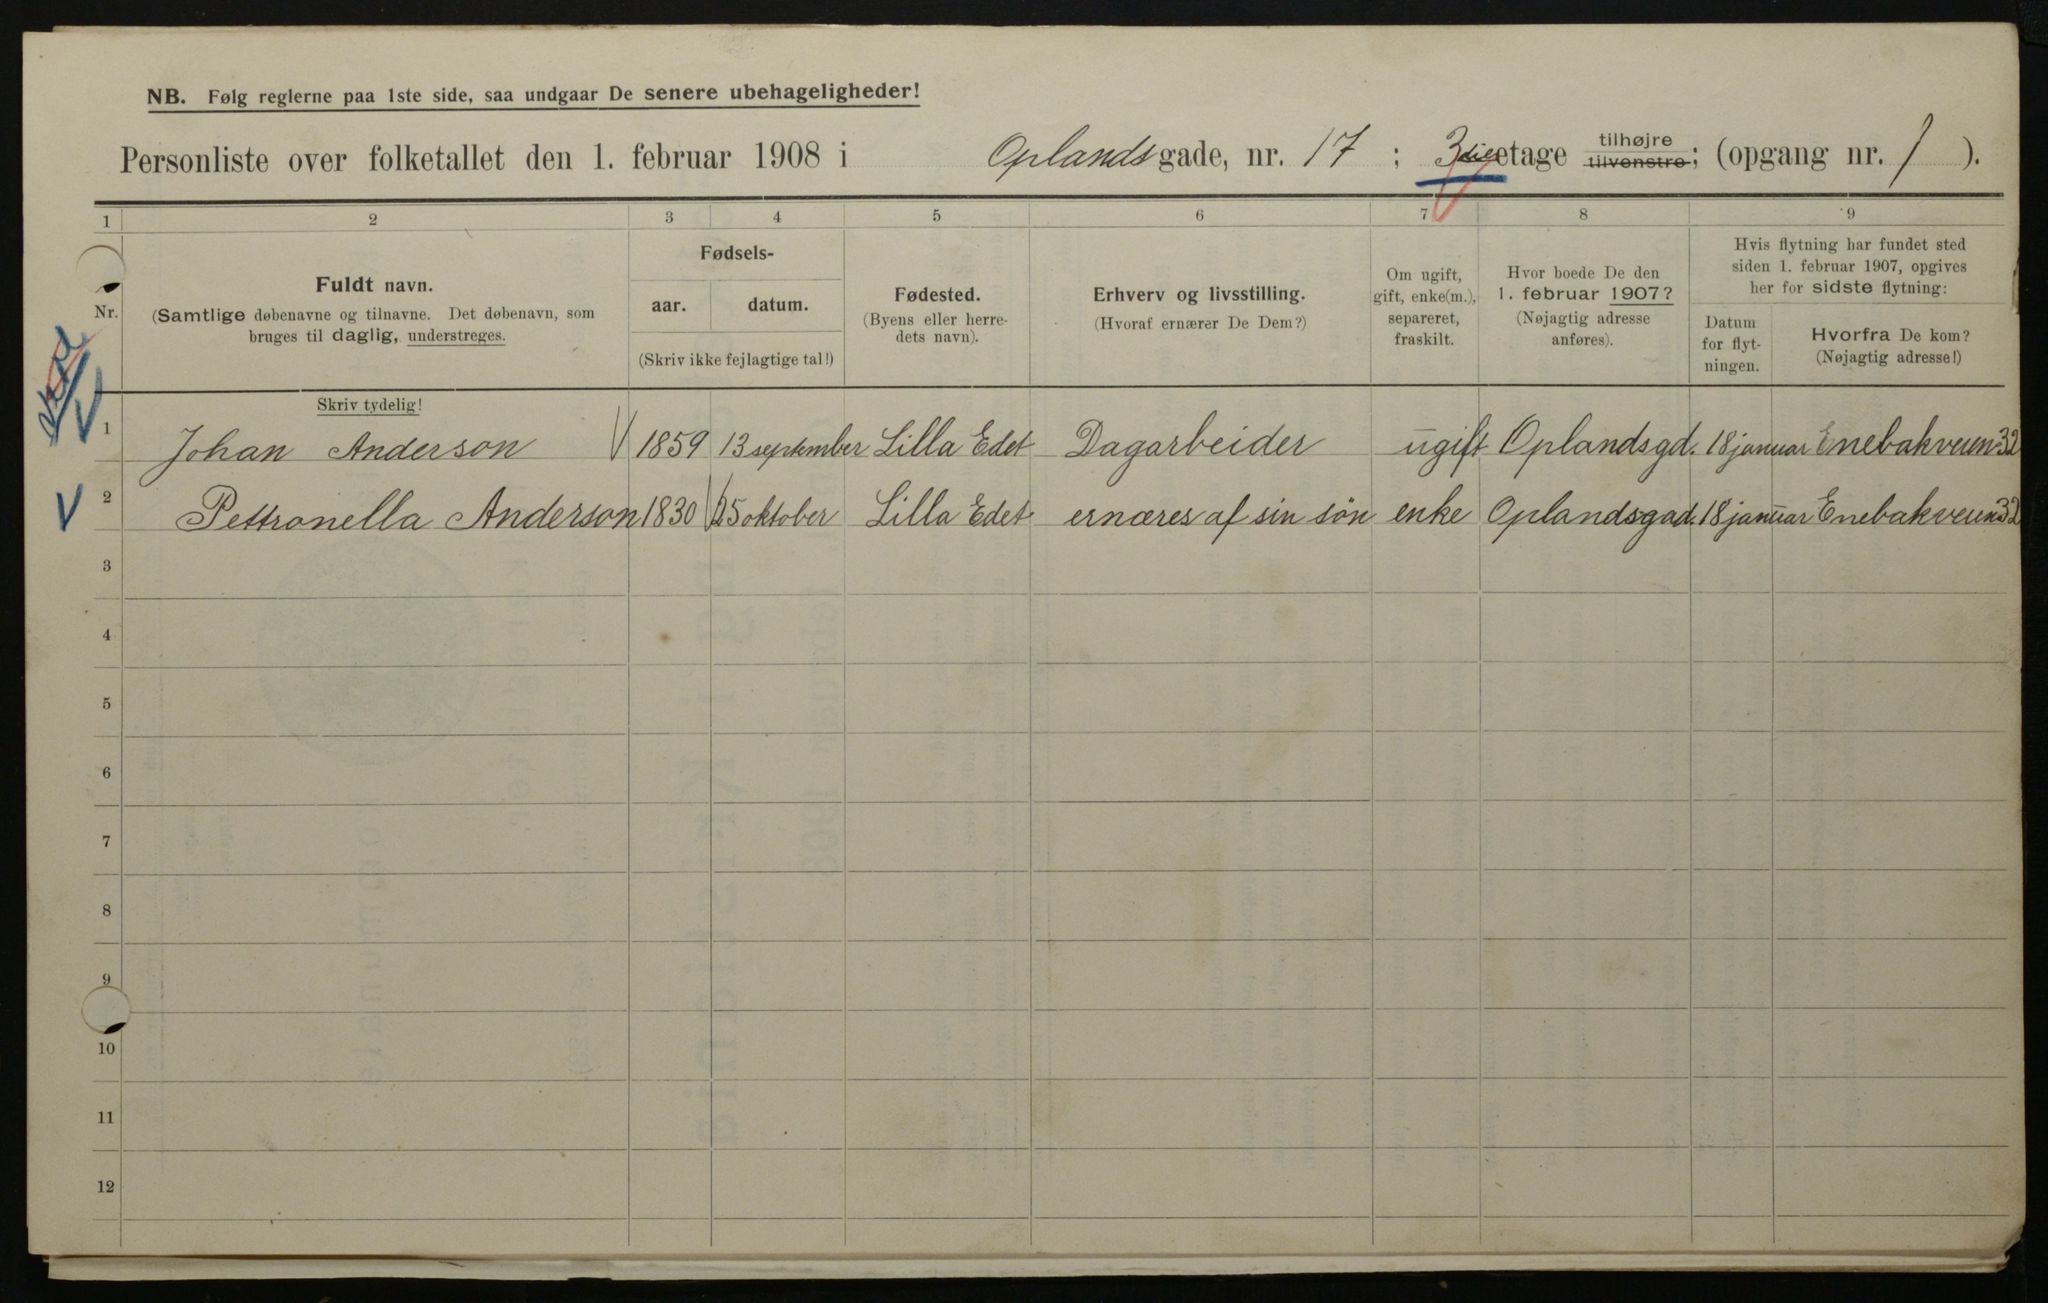 NB. Følg reglerne paa 1ste side, saa undgaar De senere ubehageligheder!
Personliste over folketallet den 1. februar 1908 i Oplandsgade, nr. 17 ; 3die etage tilhøjre tilvenstre; (opgang nr. 1 ).
1 2 3 4 5 6 7 8 9
Nr.
Fuldt navn.
(Samtlige døbenavne og tilnavne. Det døbenavn, som
bruges til daglig, understreges.
Skriv tydelig!
Fødsels-
aar. datum.
(Skriv ikke fejlagtige tal!)
Fødested.
(Byens eller herre-
dets navn).
Erhverv og livsstilling.
(Hvoraf ernærer De Dem?)
Om ugift,
gift, enke(m.),
separeret,
fraskilt.
Hvor boede De den
1. februar 1907?
(Nøjagtig adresse
anføres).
Hvis flytning har fundet sted
siden 1. februar 1907, opgives
her for sidste flytning:
Datum
for flyt-
ningen.
Hvorfra De kom?
(Nøjagtig adresse!)
1 Johan Anderson 1859 13 september Lilla Edet Dagarbeider ugift Oplandsgd. 18 januar Enebakveien 32
2 Pettronella Anderson 1830 25 oktober Lilla Edet ernæres af sin sön enke Oplandsgad. 18 januar Enebakveien 32
3
4
5
6
7
8
9
10
11
12